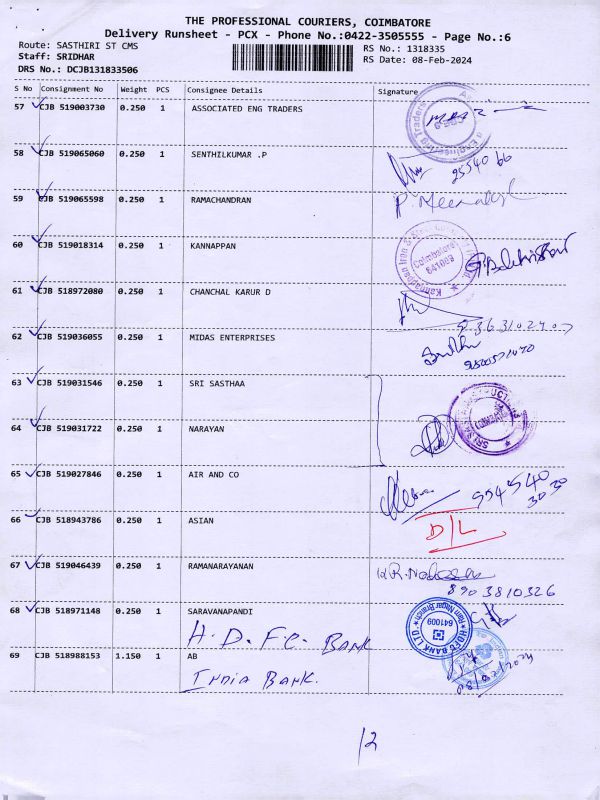 THE PROFESSIONAL COURIERS, COIMBATORE
Delivery Runsheet - PCX - Phone No.:0422-3505555 - Page No.:6
Route: SASTHIRI ST CMS
RS No.: 1318335
Staff: SRIDHAR
RS Date: 08-Feb-2024
DRS No.: DCJB131833506
S No Consignment No Weight PCS Consignee Details Signature
57 CJB 519003730 0.250 1 ASSOCIATED ENG TRADERS
58 CJB 519065060 0.250 1 SENTHILKUMAR .P
95540 66
59 CJB 519065598 0.250 1 RAMACHANDRAN
60 CJB 519018314 0.250 1 KANNAPPAN
Coimbatore
641009
61 CJB 518972080 0.250 1 CHANCHAL KARUR D
62 CJB 519036055 0.250 1 MIDAS ENTERPRISES
63 CJB 519031546 0.250 1 SRI SASTHAA
64 CJB 519031722 0.250 1 NARAYAN
65 CJB 519027846 0.250 1 AIR AND CO
95454 0
30 30
66 CJB 518943786 0.250 1 ASIAN
D/L
67 CJB 519046439 0.250 1 RAMANARAYANAN
8903810326
68 CJB 518971148 0.250 1 SARAVANAPANDI
H.D.F.C. BANK
HDFC BANK LTD.
Ram Nagar Branch
641009
69 CJB 518988153 1.150 1 AB
INDIA BANK.
12